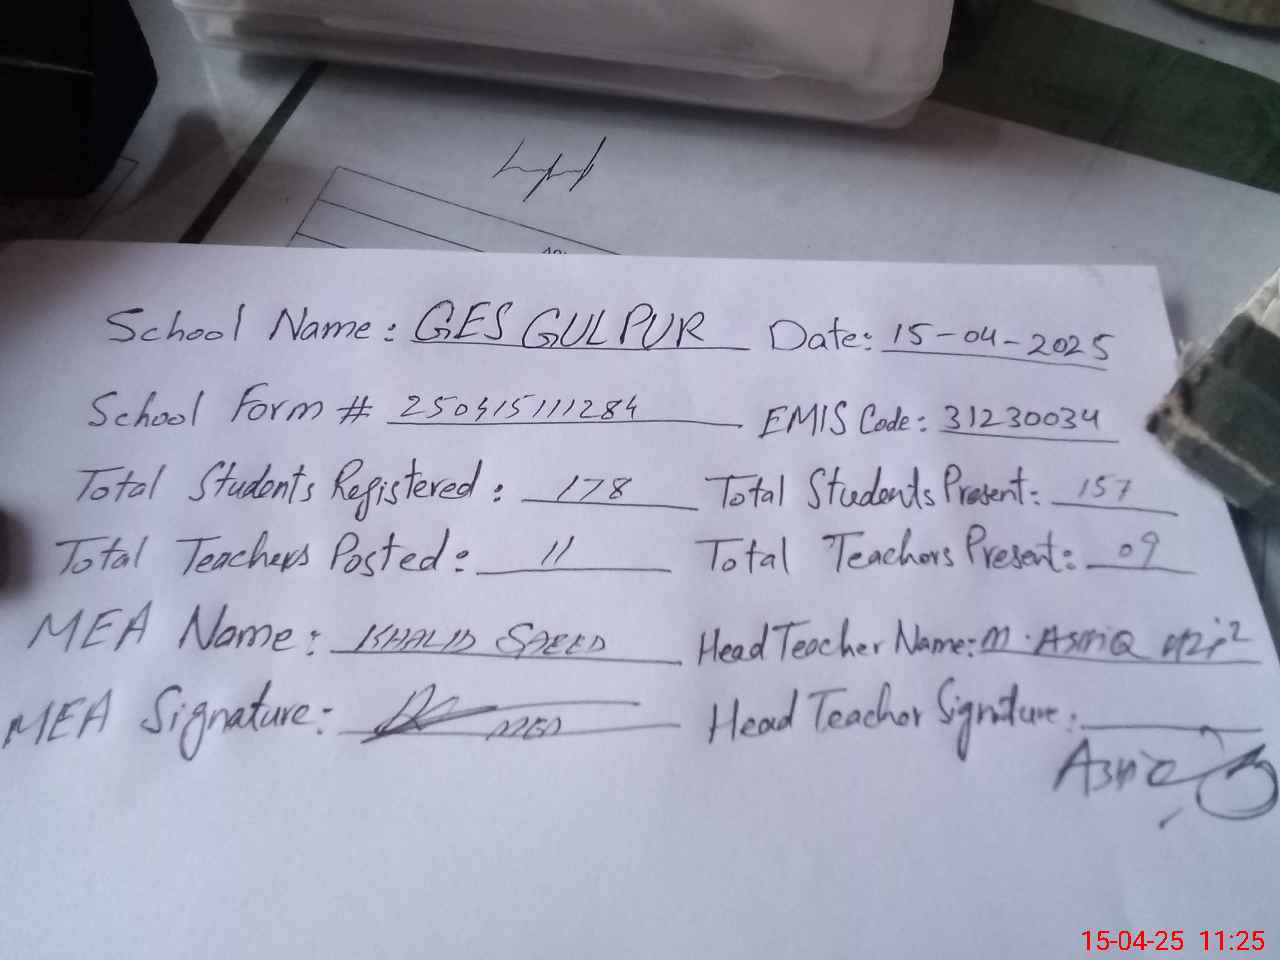 School Name: GES GULPUR Date: 15-04-2025
School Form # 250415111284 EMIS Code: 31230034
Total Students Registered: 178 Total Students Present: 157
Total Teachers Posted: 11 Total Teachers Present: 09
MEA Name: KHALID SAEED Head Teacher Name: M. ASHIQ
MEA Signature: MEA Head Teacher Signature:
Ashiq
15-04-25 11:25